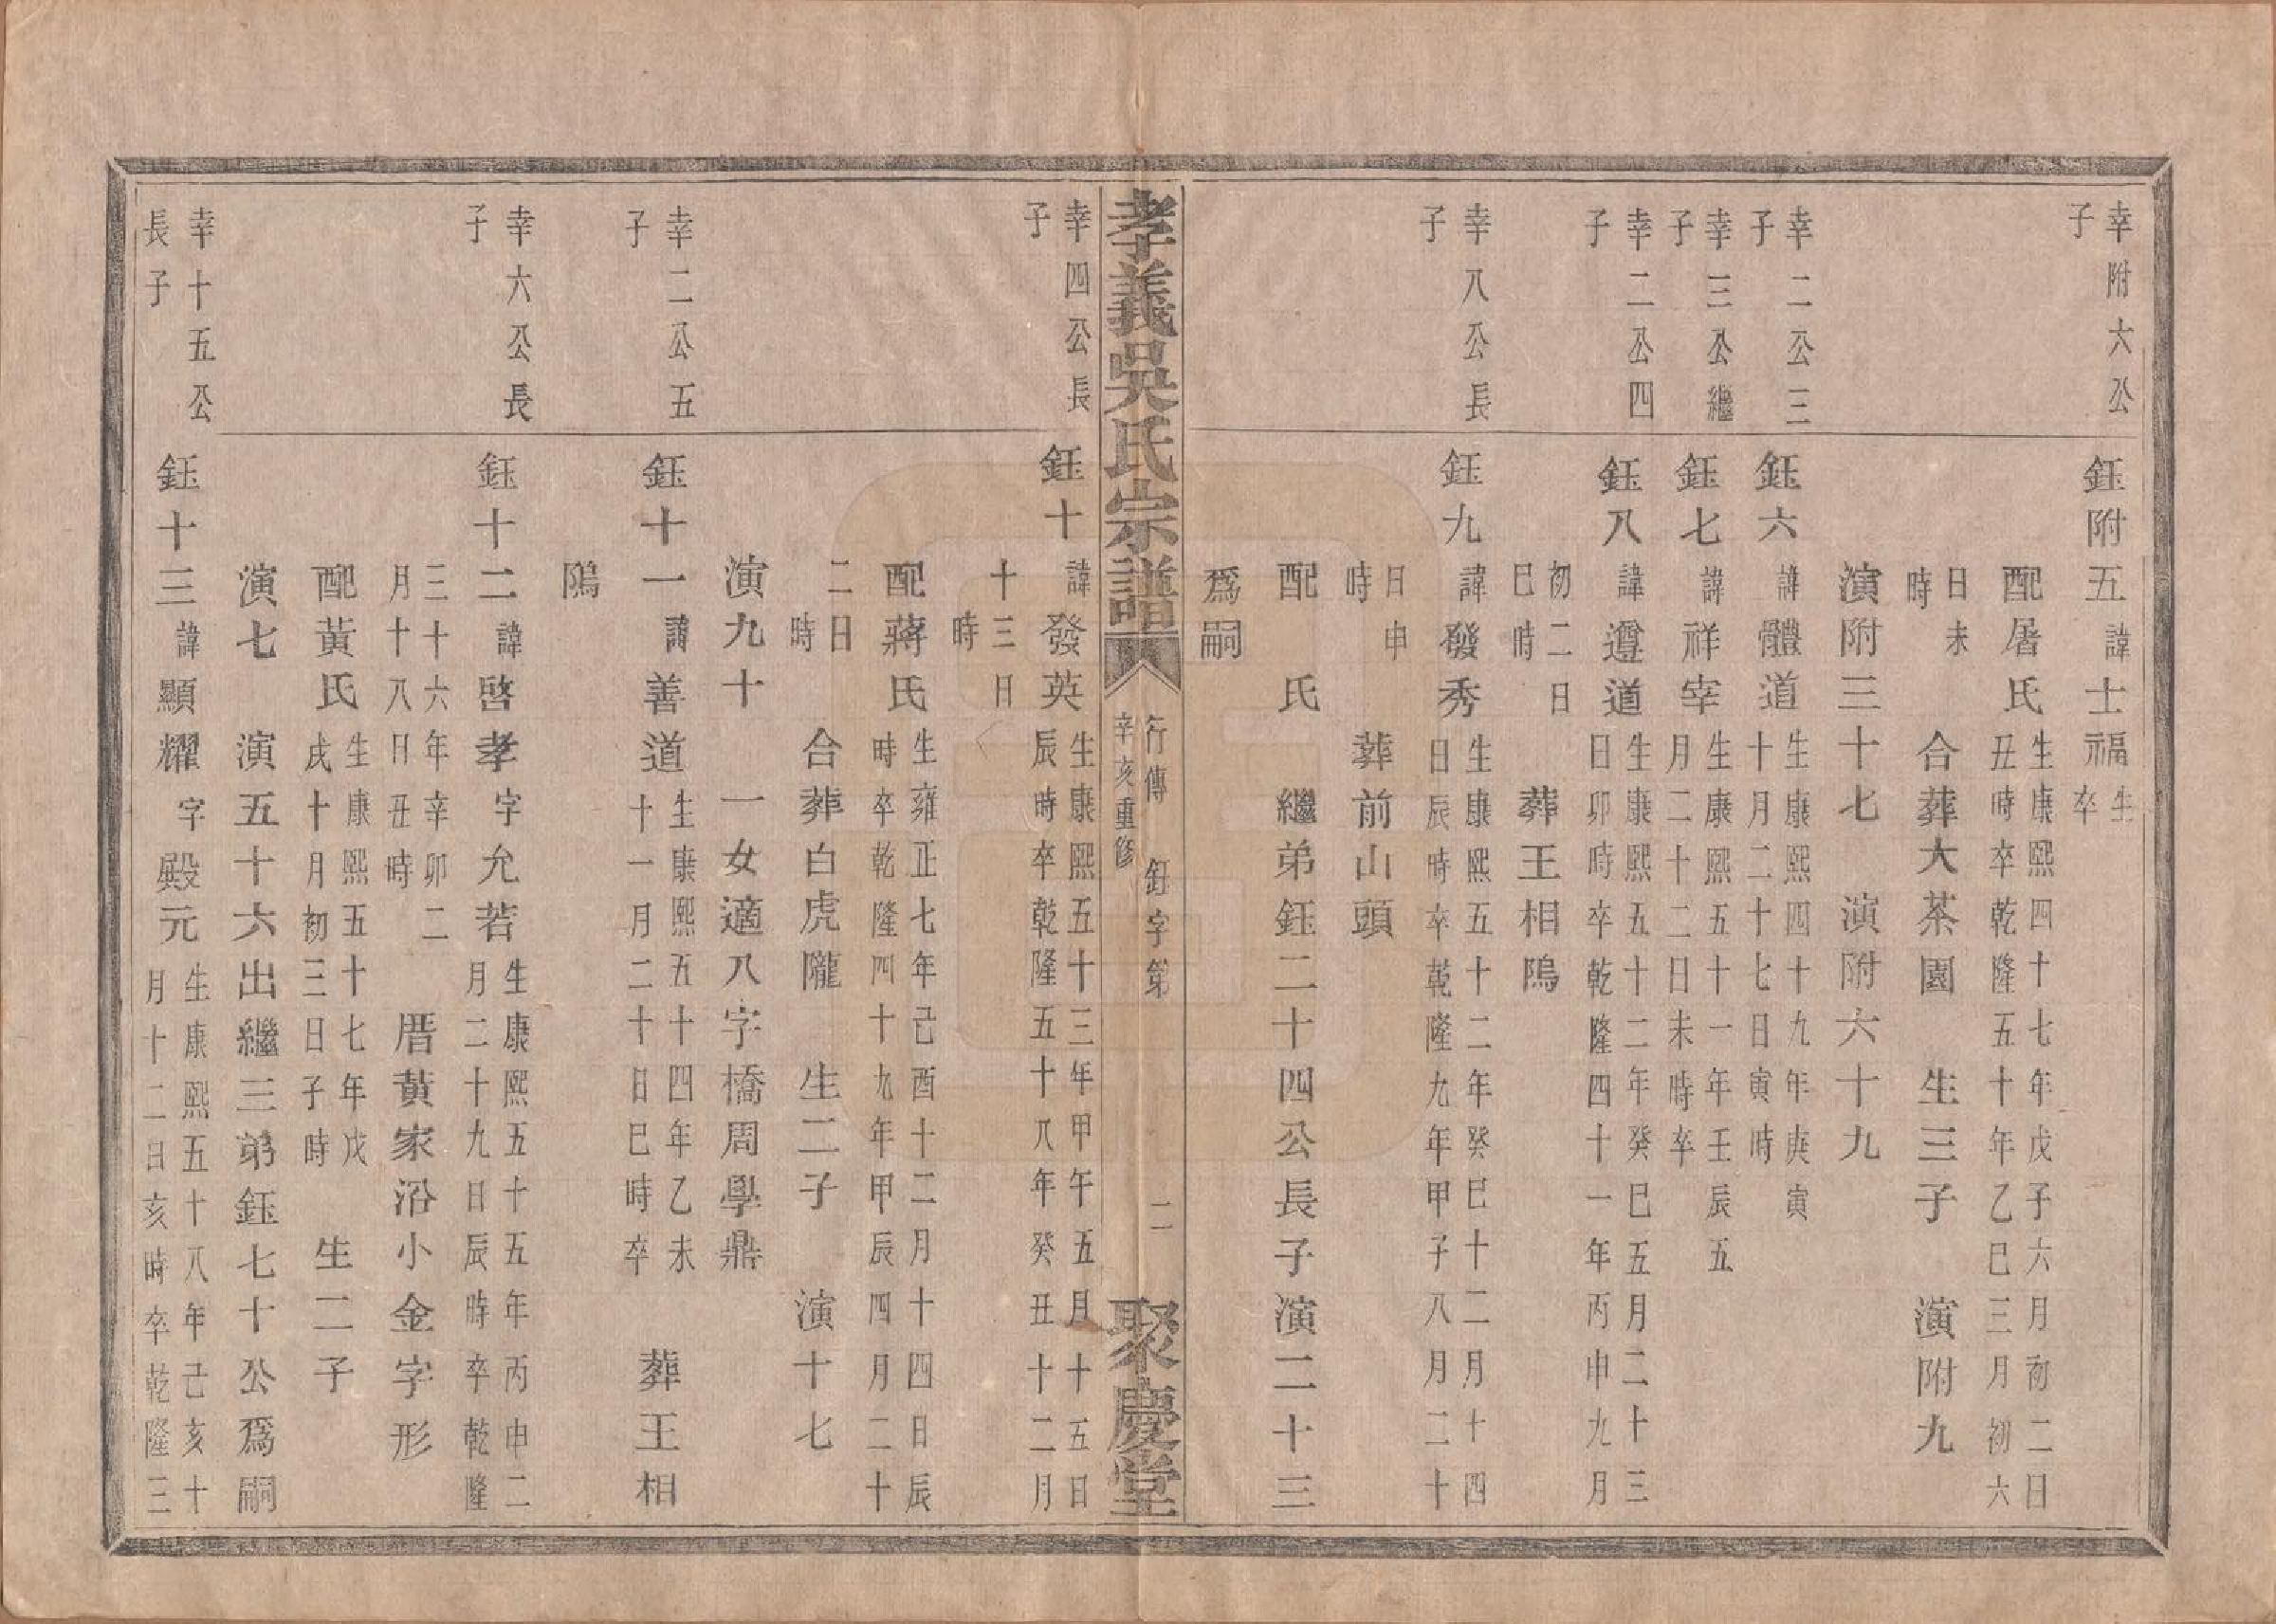 幸附六公
子
鈺附五諱士福生
卒
配屠氏生康熙四十七年戊子六月初二日
丑時卒乾隆五十年乙巳三月初六
日未
時
合葬大茶園　生三子　演附九
演附三十七　演附六十九
幸二公三
子
鈺六諱體道生康熙四十九年庚寅
十月二十七日寅時
幸三公繼
子
鈺七諱祥宰生康熙五十一年壬辰五
月二十二日未時卒
幸二公四
子
鈺八諱遵道生康熙五十二年癸巳五月二十三
日卯時卒乾隆四十一年丙申九月
初二日
巳時
葬王相隖
幸八公長
子
鈺九諱發秀生康熙五十二年癸巳十二月十四
日辰時卒乾隆九年甲子八月二十
日申
時
葬前山頭
配　氏　繼弟鈺二十四公長子演二十三
爲嗣
孝義吳氏宗譜
行傳　鈺字第　二
辛亥重修
聚慶堂
幸四公長
子
鈺十諱發英生康熙五十三年甲午五月十五日
辰時卒乾隆五十八年癸丑十二月
十三日
時
配蔣氏生雍正七年己酉十二月十四日辰
時卒乾隆四十九年甲辰四月二十
二日
時
合葬白虎隴　生二子　演十七
演九十　一女適八字橋周學鼎
幸二公五
子
鈺十一諱善道生康熙五十四年乙未
十一月二十日巳時卒
葬王相
隖
幸六公長
子
鈺十二諱啓孝字允若生康熙五十五年丙申二
月二十九日辰時卒乾隆
三十六年辛卯二
月十八日丑時
厝黃家沿小金字形
配黃氏生康熙五十七年戊
戌十月初三日子時
生二子
演七　演五十六出繼三弟鈺七十公爲嗣
幸十五公
長子
鈺十三諱顯耀字殿元生康熙五十八年己亥十
月十二日亥時卒乾隆三